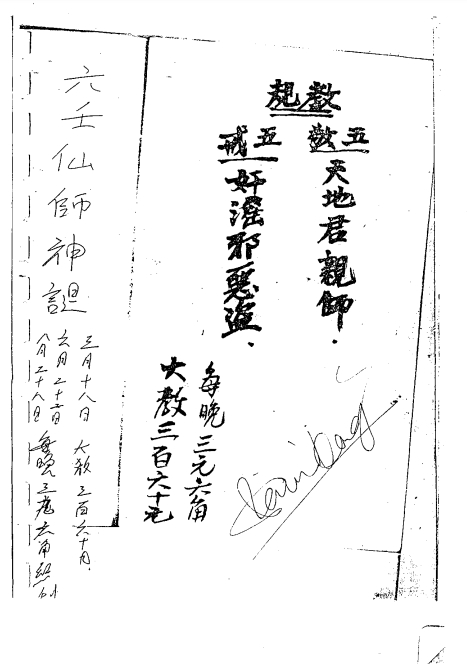 教規
五敬 天地君親師.
五戒 奸淫邪惡盜.
每晚三元六角
大教三百六十元
六壬仙師神誕
三月十八日 大教三百六十円.
六月二十三日
八月二十八日 每晚三元六角